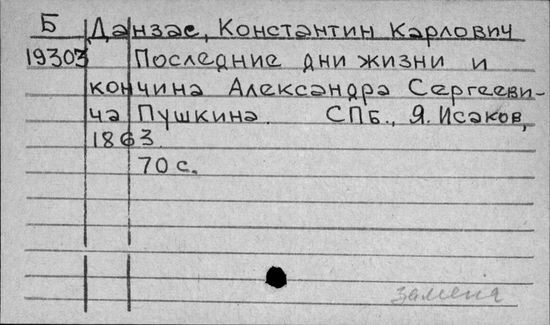 Б Данзас, Константин Карлович
19303 Последние дни жизни и
кончина Александра Сергееви-
ча Пушкина. СПБ., Я. Исаков,
1863.
70 с.
замена